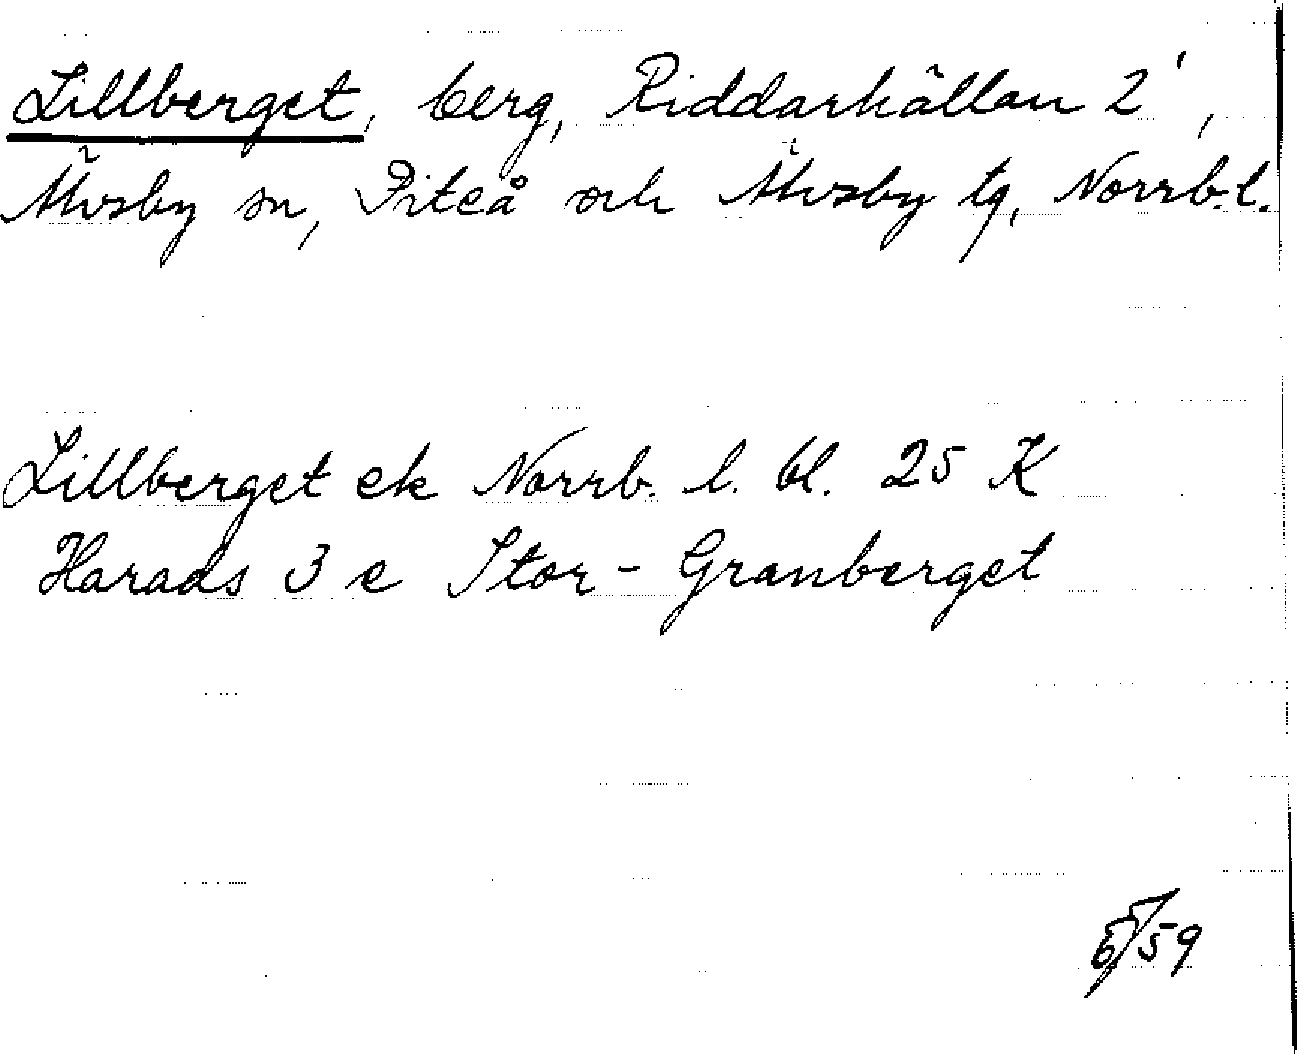 Lillberget, berg, Riddarhällan 2',
Älvsby sn, Piteå och Älvsby tg, Norrb.l.
Lillberget ek Norrb. l. bl. 25 K
Harads 3 e Stor-Granberget
5/59